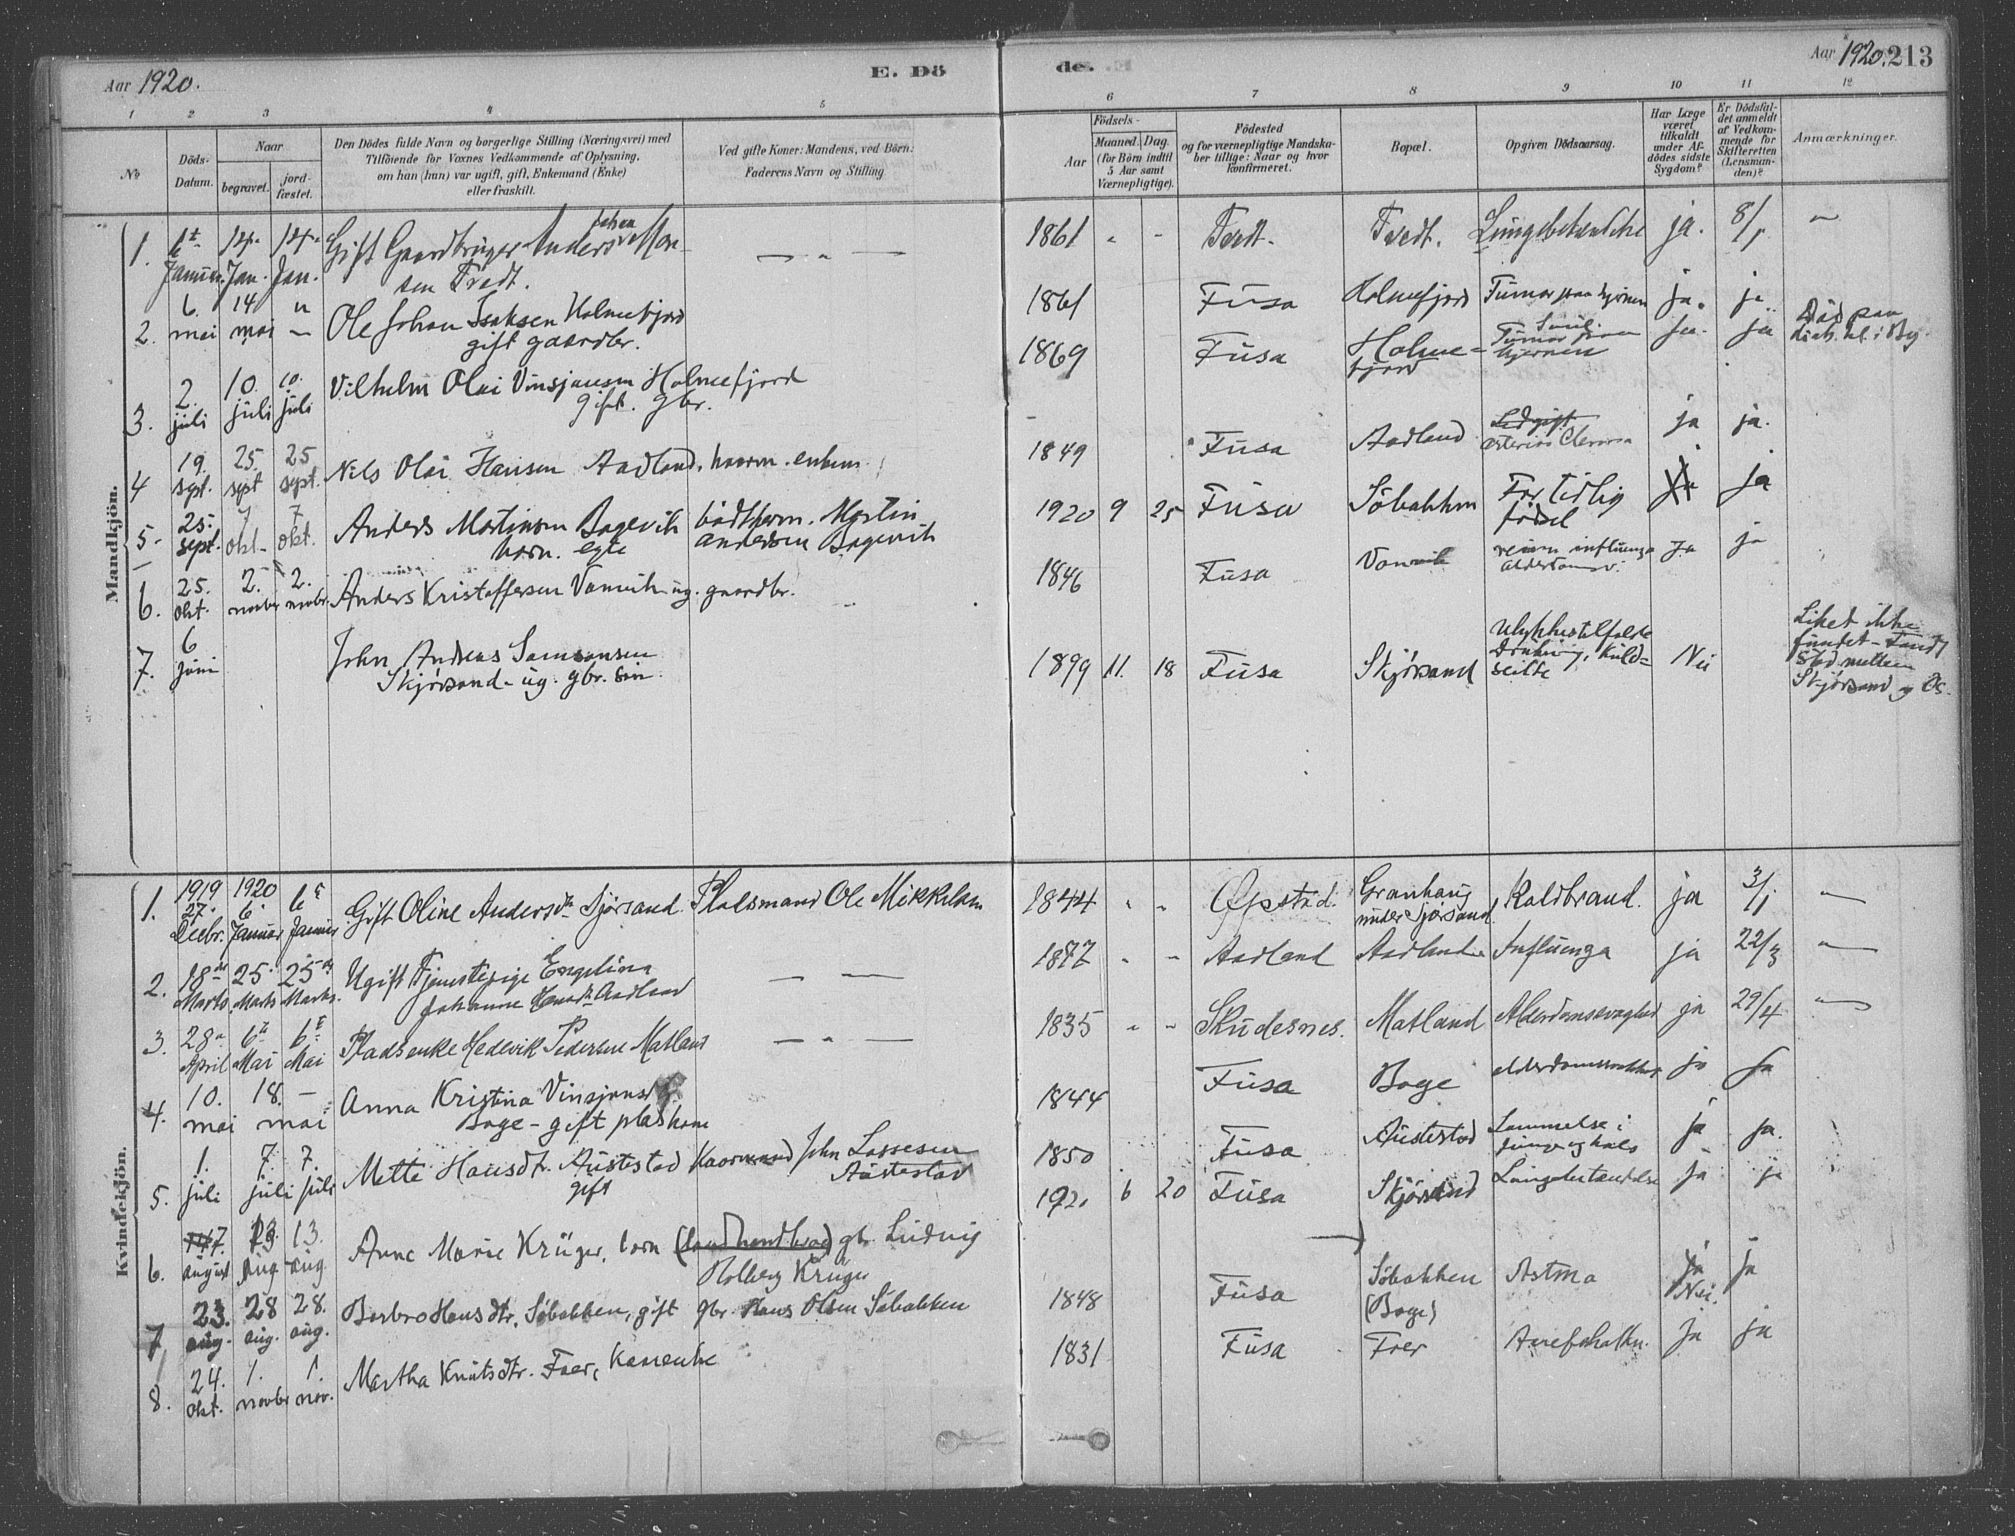 Aar 1920.
E. Dö
de.
Aar 1920. 213
1 2 3 4 5 6 7 8 9 10 11 12
No
Döds-
Datum.
Naar
begravet.
jord-
fæstet.
Den Dödes fulde Navn og borgerlige Stilling (Næringsvei) med
Tilföiende for Voxnes Vedkommende af Oplysning,
om han (hun) var ugift, gift, Enkemand (Enke)
eller fraskilt.
Ved gifte Koner: Mandens, ved Börn:
Faderens Navn og Stilling
Födsels-
Aar
Maaned. Dag.
(for Börn indtil
5 Aar samt
Værnepligtige).
Födested
og for værnepligtige Mandska-
ber tillige: Naar og hvor
konfirmeret.
Bopæl.
Opgiven Dödsaarsag.
Har Læge
været
tilkaldt
under Af-
dödes sidste
Sygdom?
Er Dödsfal-
det anmeldt
af Vedkom-
mende for
Skifteretten
(Lensman-
den)?
Anmærkninger.
Mandkjön.
1. Januar. 14. Jan. 14. Jan. Gift Gaardbruger Anders Johan Mon-
sen Tvedt. 1861 Tvedt. Tvedt. Lungebetændelse ja. 8/1 —
2. 6. mai 14 mai Ole Johan Isaksen Holmefjord
gift gaardbr. 1861 Fusa Holmefjord Tumor paa hjernen ja. ja.
3. 2. juli 10. juli 10. juli Vilhelm Olai Vinsjansen Holmefjord
gift. gbr. 1869 Fusa Holme-
fjord Tumor
hjernen ja. ja Död paa
i By.
4 19. sept. 25. sept 25 sept. Nils Olai Hansen Aadland. enkem. 1849 Fusa Aadland ja ja.
5 25. sept. 7 okt. 7 okt. Anders Martinsen Bogevik
barn. egte Martin
Andersen Bogevik 1920 9 25 Fusa Söbakken For tidlig
födsel ja
6. 25. okt. 2. novbr 2. novbr. Anders Kristoffersen Vamvik ug. gaardbr. 1846 Fusa Vamvik influenza ja ja
7. 6 juni John Andreas Samsonsen
Skjörsand - ug. gbr. sön. 1899 11. 18 Fusa Skjörsand Ulykkestilfælde
Drukning, Kuld-
seilte Nei Liket ikke
fundet -
mellem
Skjörsand og Os.
Kvindekjön.
1. 1919 27. Decbr. 1920 6. Januar 6 Januar Gift Oline Andersdtr Sjörsand Pladsmand Ole Mikkelsen 1844 Öpstad Granhaug
under Sjörsand Koldbrand. ja 3/1 —
2. 18de Marts 25. Marts 25de Marts. Ugift Tjenestepige Engelina
Johanne Aadland — — 1877 Aadland Aadland Influenza ja 22/3 —
3. 28 April 6te Mai 6te Mai Pladsenke Hedevik Pedersen Matland — — 1835 Skudesnes. Matland Alderdomssvaghed ja 29/4 —
4. 10. mai 18. mai — Anna Kristina Vinsjansdtr.
Boge - gift 1844 Fusa Boge alderdomssvakhet ja ja
5. 1. juli 7. juli 7. juli Mette Hansdtr. Austestad
gift John Lassesen
Austestad 1850 Fusa Austestad Lammelse i
tunge og hals ja ja.
6. 7. august 13. aug 13. aug Anne Marie Krüger, barn gbr. Ludvig
Holberg Krüger 1920 6 20 Fusa Skjörsand Lungebetændelse ja ja
7 23. aug. 28 aug. 28. aug. Barbro Hansdtr. Söbakken, gift gbr. Hans Olsen Söbakken 1848 Fusa Söbakken
(Boge) Astma ja
Nei. ja
8. 24. okt. 1. novbr 1. nov. Martha Knutsdtr. Foer, 1831 Fusa Foer ja ja